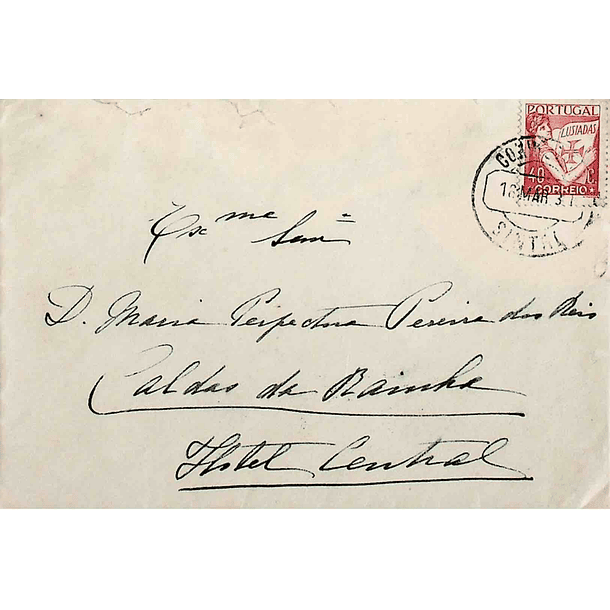 PORTUGAL
LUSIADAS
40 C.
CORREIO
18 MAR 3
SINTRA
Exc me Senr
D. Maria Perpectua Pereira dos Reis
Caldas da Rainha
Hotel Central